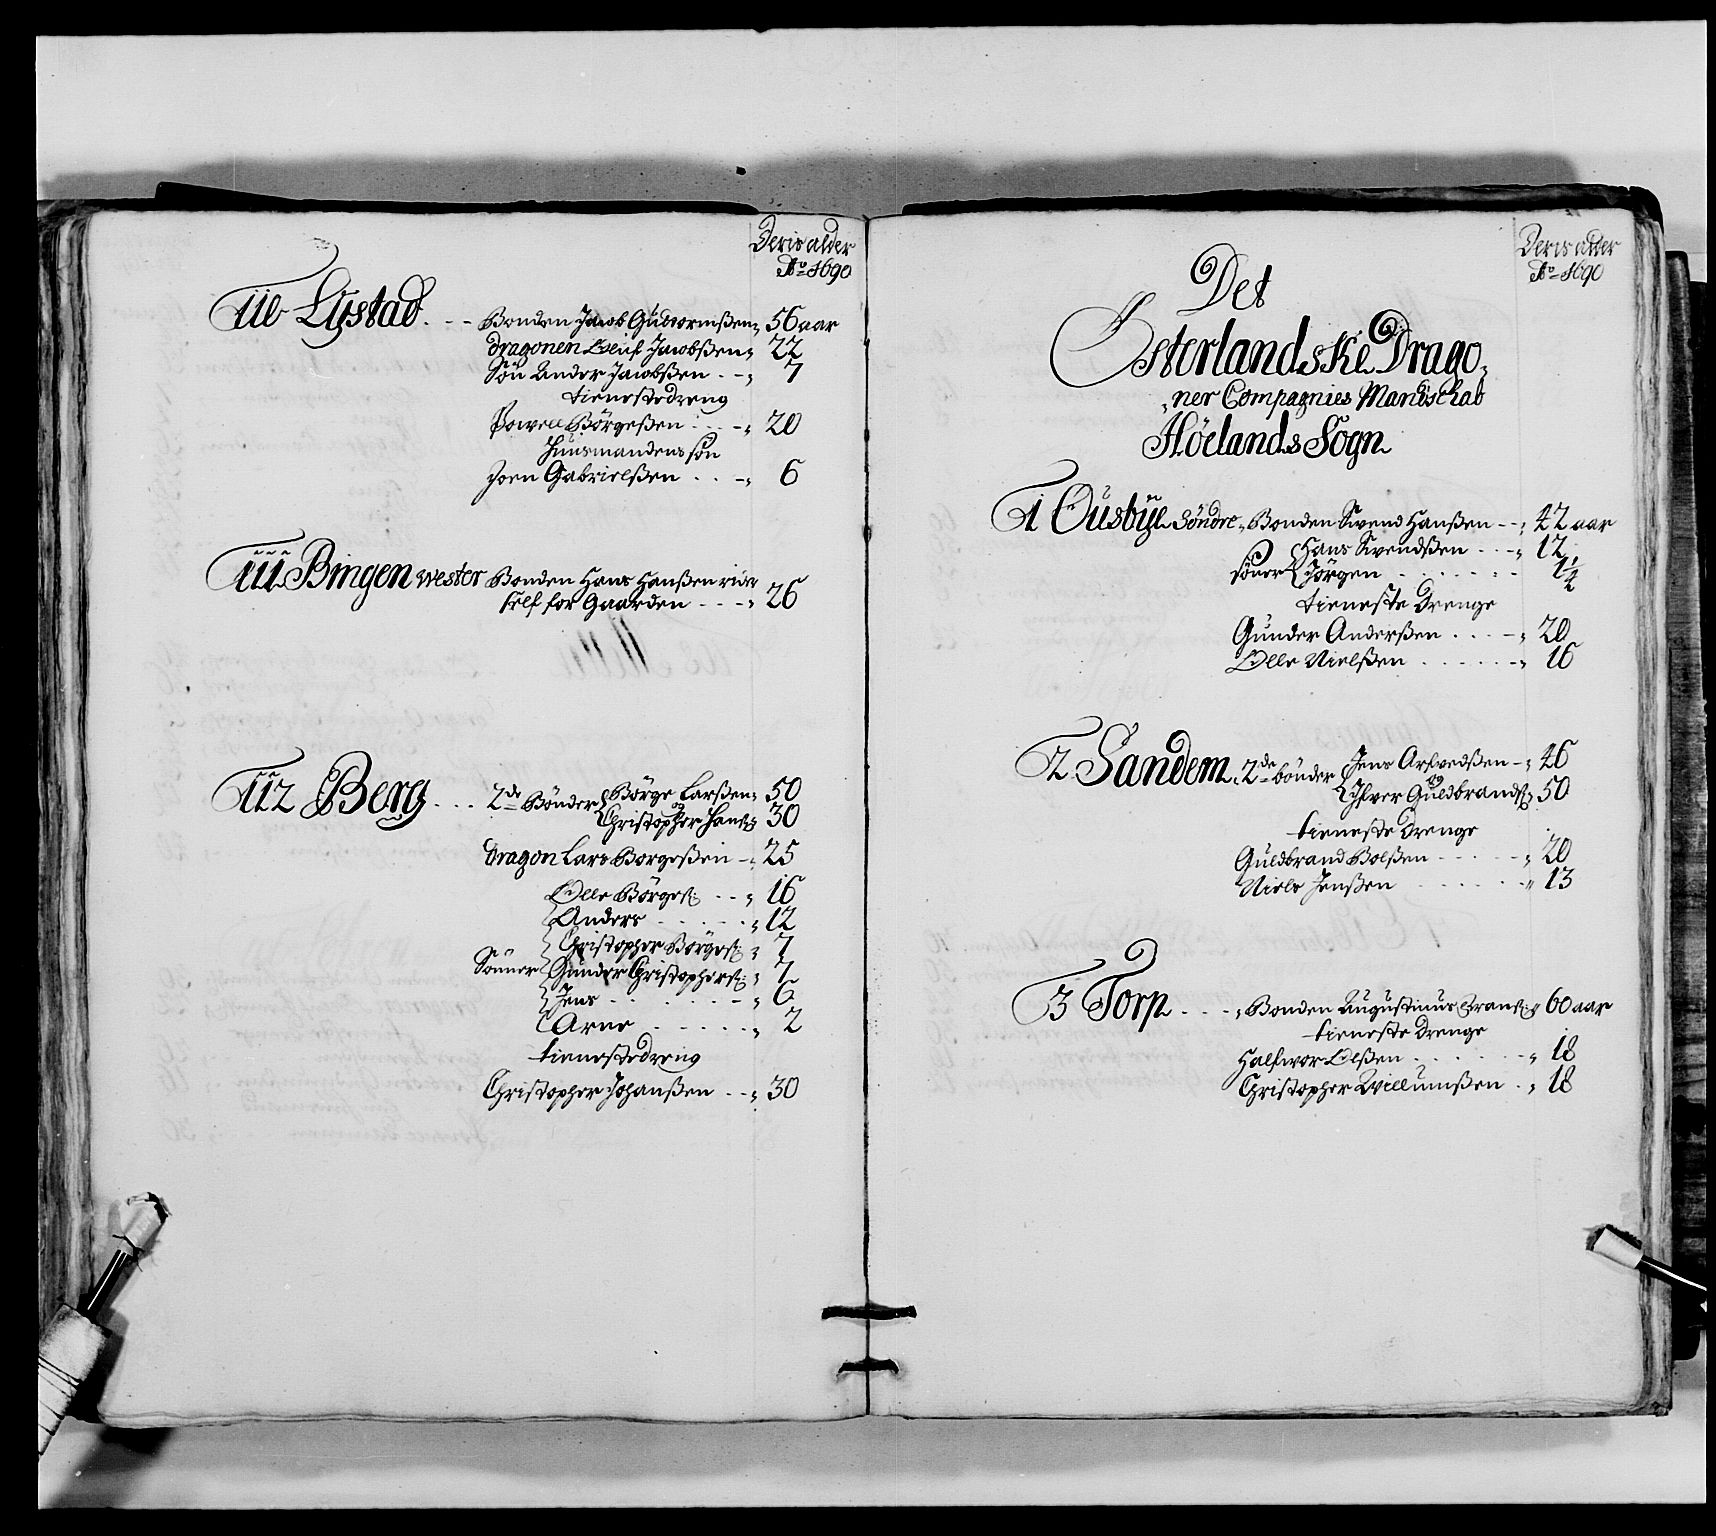 Deris alder
Ao 1690
110 Lystad . - - Bonden Jacob Gudtormsßen 56 aar
dragonen Oluf Jacobsßen 22
Søn Ander Jacobßen . - 7
tienestedreng
Powell Börgeßen . . . - 20
Huusmandens søn
Joen Gabrielßen . . - 6
111 Bingen wester Bonden Hans Hanßen rider
self for Gaarden - - - 26
112 Berg . . . 2de Bönder Börge Larßen 50
og
Christopher Hanß: 30
dragon Lars Borgeßen - 25
Olle Börgeß: - - 16
Anders . . . . . 12
Christopher Börgeß: 7
Sönner Gunder Christopherß: 7
Jens - . . . . - 6
Arne . . . . . 2
tienestedreng
Christopher Johanßen - - 30
Deris alder
Ao 1690
Det
Østerlandske Drago,
,ner Compagnies Mandschab
Höelands Sogn
1 Ousbÿe Söndre, Bonden Swend Hanßen - - 42 aar
Hans Swendßen . . - 12
sönner Jörgen . . . . . . . 1 1/2
tieneste Drenge
Gunder Anderßen . . . - 20
Olle Nielßen . . . . . . - 16
2 Sandem, 2de bönder Jens Arfwedßen - 46
og
Ifver Guldbrandß: 50
tieneste Drenge
Guldbrand Bolßen - . . . . - 20
Niels Jenßen . . . . . . - 13
3 Torp . . . - Bonden Augustinus Franß: 60 aar
tieneste Drenge
Halfwor Olßen . . . . . . - 18
Christopher Willumßen . - 18